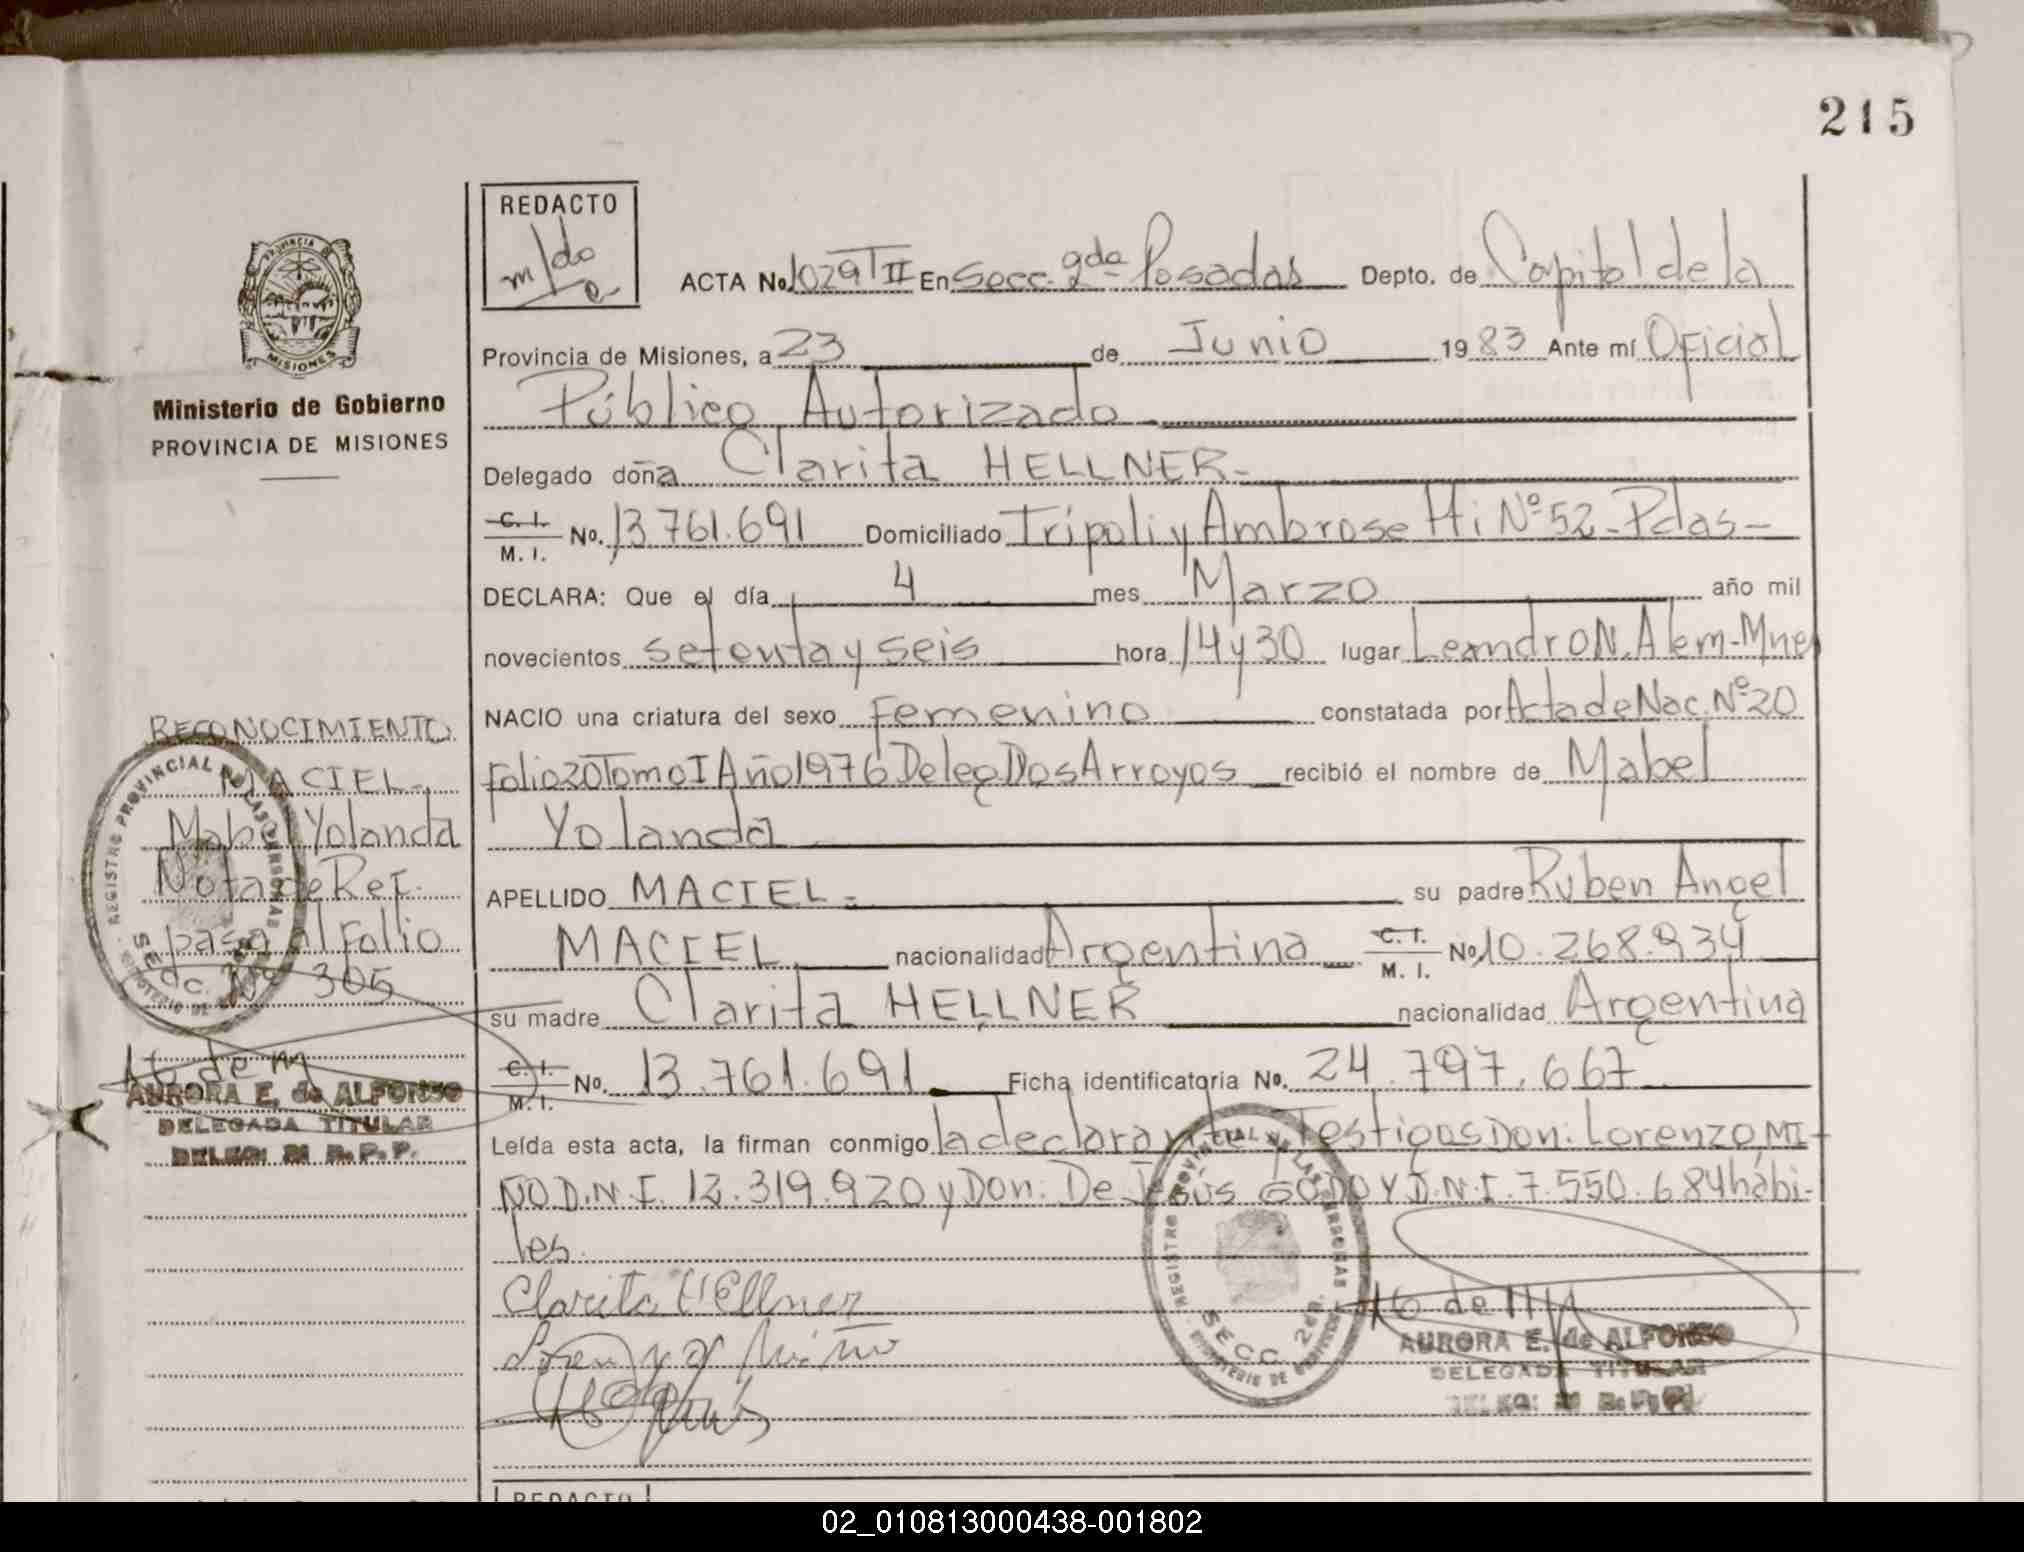 215
REDACTO
ACTA No. 1029 T II En Secc. 2da Posadas Depto. de Capital de la
Provincia de Misiones, a 23 de Junio 1983 Ante mí Oficial
Público Autorizado
Delegado doña Clarita HELLNER.-
C. I. M. I. No. 13.761.691 Domiciliado Trípoli y Ambrosetti Nº 52-Pdas-
DECLARA: Que el día 4 mes Marzo año mil
novecientos setenta y seis hora 14 y 30 lugar Leandro N. Alem-Mnes
NACIO una criatura del sexo Femenino constatada por Acta de Nac. Nº 20
Folio 20 Tomo I Año 1976 Deleg. Dos Arroyos recibió el nombre de Mabel
Yolanda
APELLIDO MACIEL.- su padre Ruben Angel
MACIEL nacionalidad Argentina C. I. M. I. No. 10.268.934
su madre Clarita HELLNER nacionalidad Argentina
C. I. M. I. No. 13.761.691 Ficha identificatoria No. 24.797.667
Leída esta acta, la firman conmigo la declarante y Testigos Don: Lorenzo MI-
ÑO D.N.I. 12.319.920 y Don: De Jesús GODOY D.N.I. 7.550.684 hábi-
les.
Clarita Hellner
Lorenzo Miño
PROVINCIA DE MISIONES
Ministerio de Gobierno
PROVINCIA DE MISIONES
RECONOCIMIENTO
MACIEL.
Mabel Yolanda
Nota de Ref.
pasa al Folio
Nº 305
REGISTRO PROVINCIAL DE LAS PERSONAS
SECC. 2da.
AURORA E. de ALFONSO
DELEGADA TITULAR
DELEG: M R.P.P.
REGISTRO PROVINCIAL DE LAS PERSONAS
SECC. 2da.
AURORA E. de ALFONSO
DELEGADA TITULAR
REDACTO
02_010813000438-001802